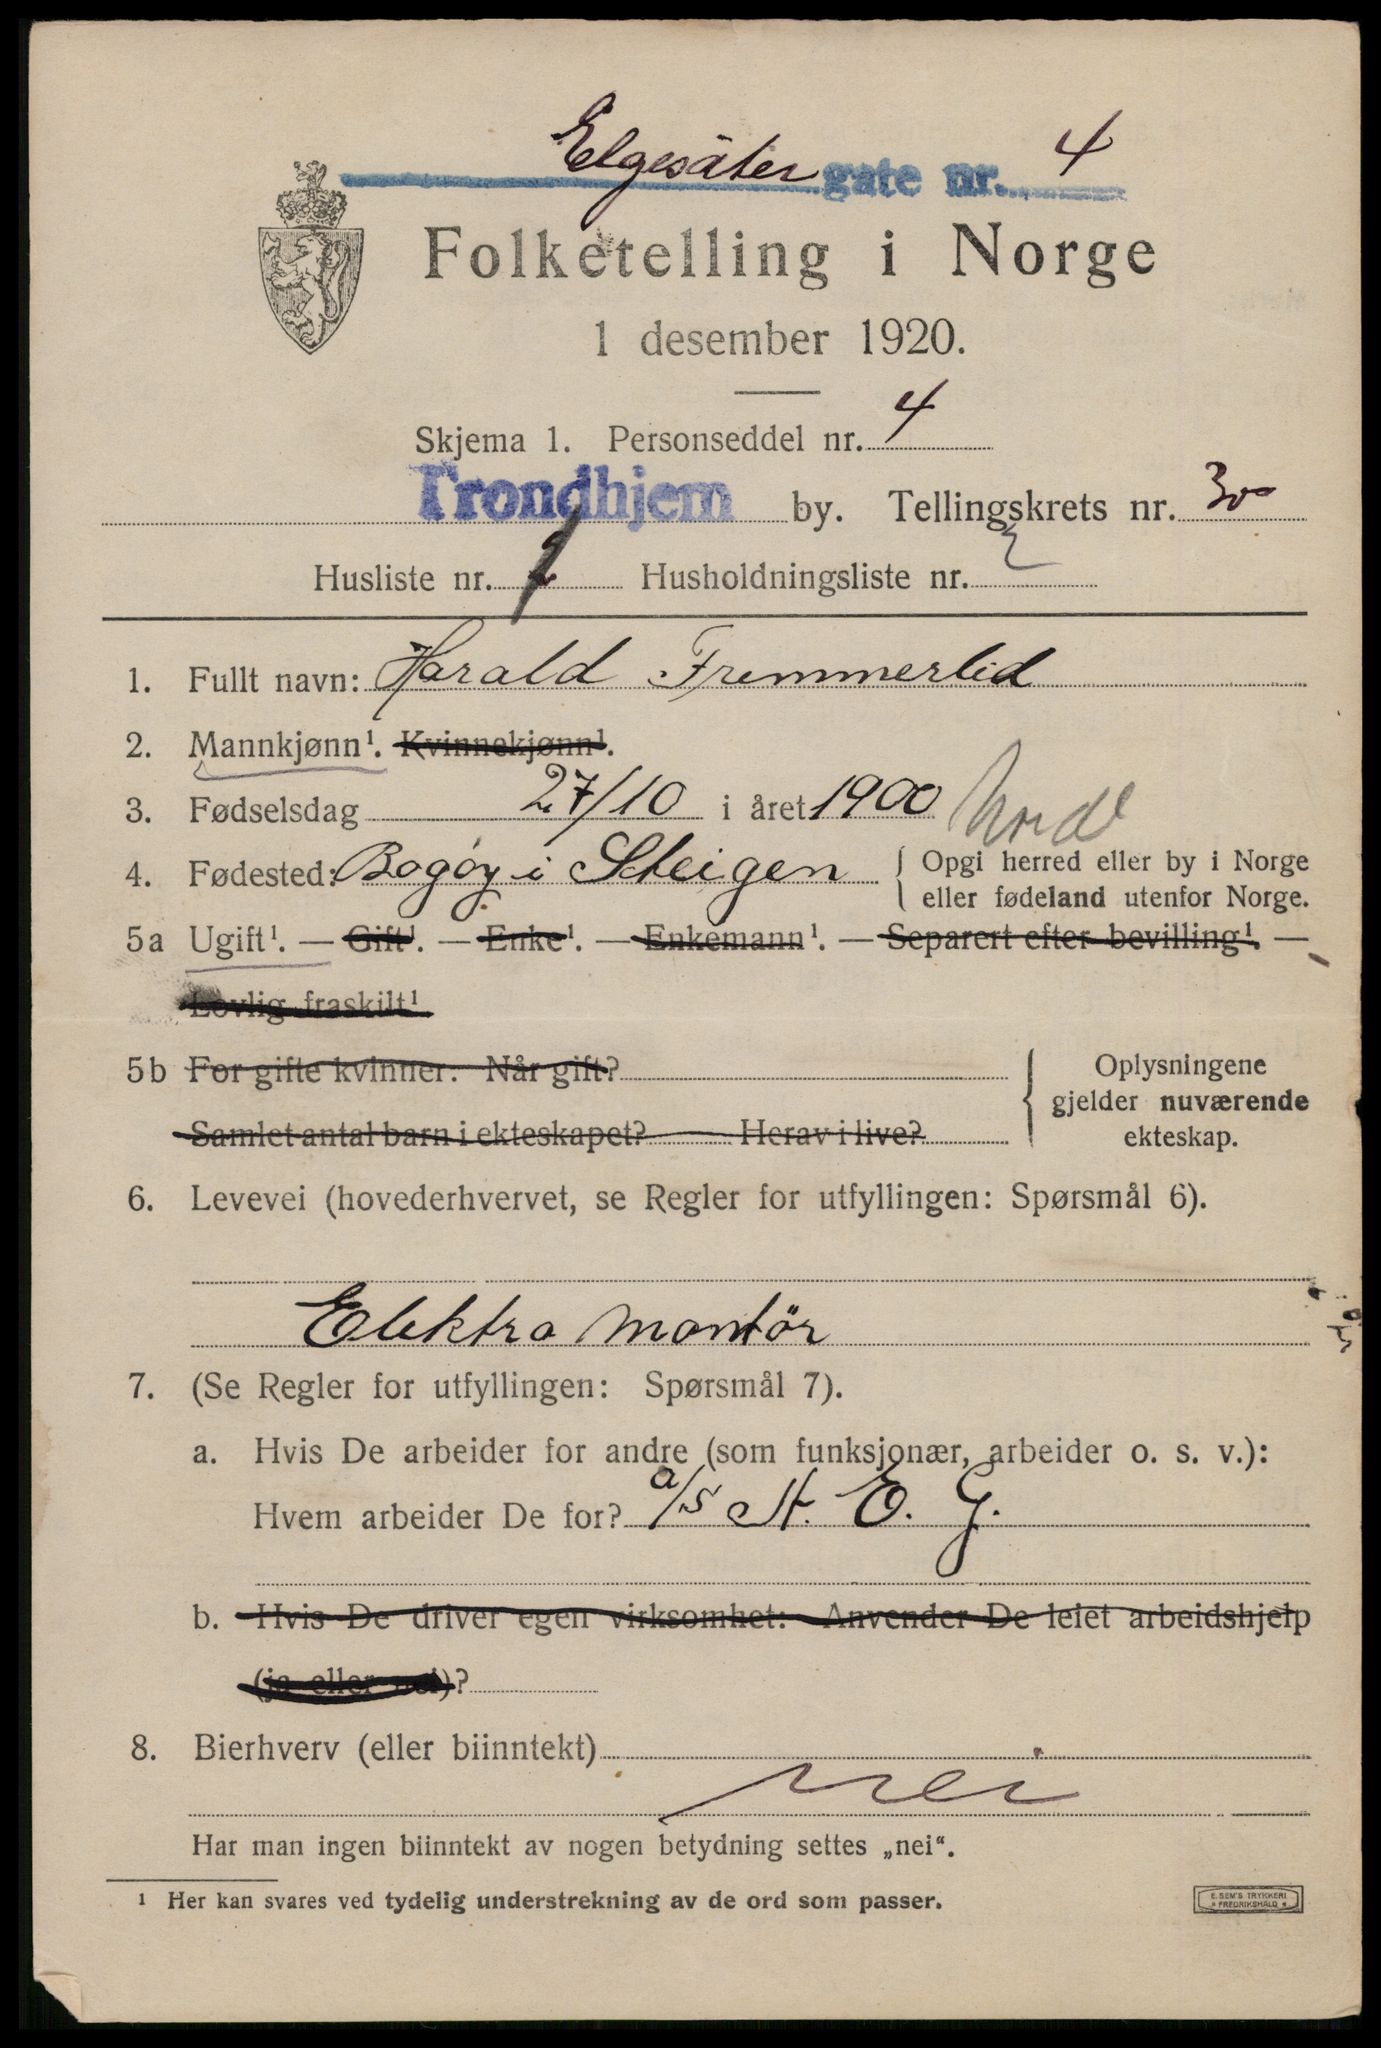 Elgesäter gate nr. 4
Folketelling i Norge
1 desember 1920.
Skjema 1. Personseddel nr. 4
Trondhjem by. Tellingskrets nr. 30
Husliste nr. 1 Husholdningsliste nr. 2
1. Fullt navn: Harald Fremmerlid
2. Mannkjønn¹. Kvinnekjønn¹.
3. Fødselsdag 27/10 i året 1900 Nordl
4. Fødested: Bogøy i Steigen { Opgi herred eller by i Norge
eller fødeland utenfor Norge.
5a Ugift¹. — Gift¹. — Enke¹. — Enkemann¹. — Separert efter bevilling¹. —
Lovlig fraskilt¹
5b For gifte kvinner: Når gift? Oplysningene
gjelder nuværende
Samlet antal barn i ekteskapet? Herav i live? ekteskap.
6. Levevei (hovederhvervet, se Regler for utfyllingen: Spørsmål 6).
Elektro montör
7. (Se Regler for utfyllingen: Spørsmål 7).
a. Hvis De arbeider for andre (som funksjonær, arbeider o. s. v.):
Hvem arbeider De for? a/s N. E. G.
b. Hvis De driver egen virksomhet: Anvender De leiet arbeidshjelp
(ja eller nei)?
8. Bierhverv (eller biinntekt)
nei
Har man ingen biinntekt av nogen betydning settes „nei“.
¹ Her kan svares ved tydelig understrekning av de ord som passer.
E. SEM'S TRYKKERI
* FREDRIKSHALD *